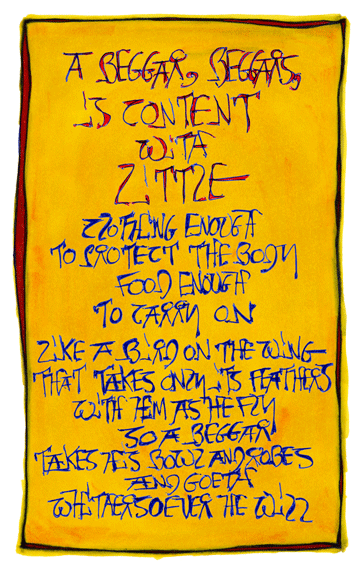 A BEGGAR, BEGGARS,
IS CONTENT
WITH
LITTLE
CLOTHING ENOUGH
TO PROTECT THE BODY
FOOD ENOUGH
TO CARRY ON
LIKE A BIRD ON THE WING
THAT TAKES ONLY ITS FEATHERS
WITH HEM AS HE FLY
SO A BEGGAR
TAKES HIS BOWL AND ROBES
AND GOETH
WHITHERSOEVER HE WILL